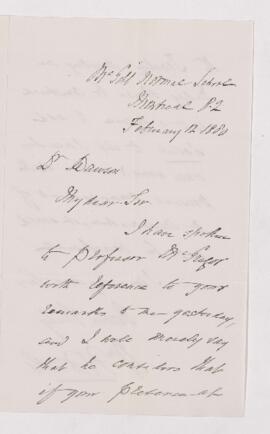 McGill Normal School
Montreal P.Q
February 12 1880
Dr Dawson
My dear Sir
I have spoken
to Professor McGregor
with reference to your
remarks to me yesterday,
and I note merely say
that he considers that
if your presence at